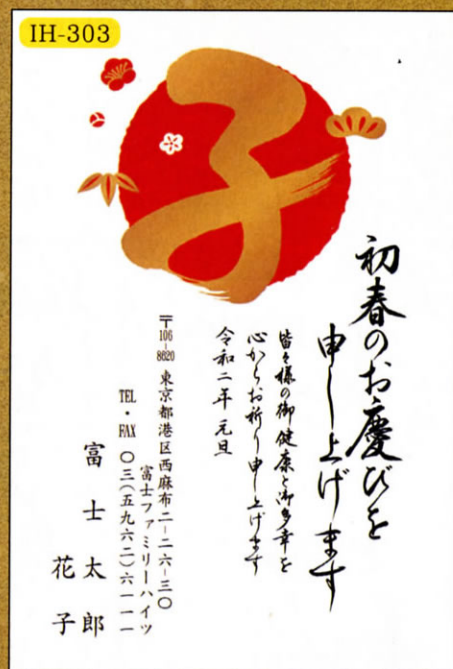 IH-303
子
初春のお慶びを
申し上げます
皆々様の御健康と御多幸を
心からお祈り申し上げます
令和二年 元旦
〒106-8620 東京都港区西麻布二-二六-三〇
富士ファミリーハイツ
TEL・FAX 〇三(五九六二)六一一一
富士太郎
花子